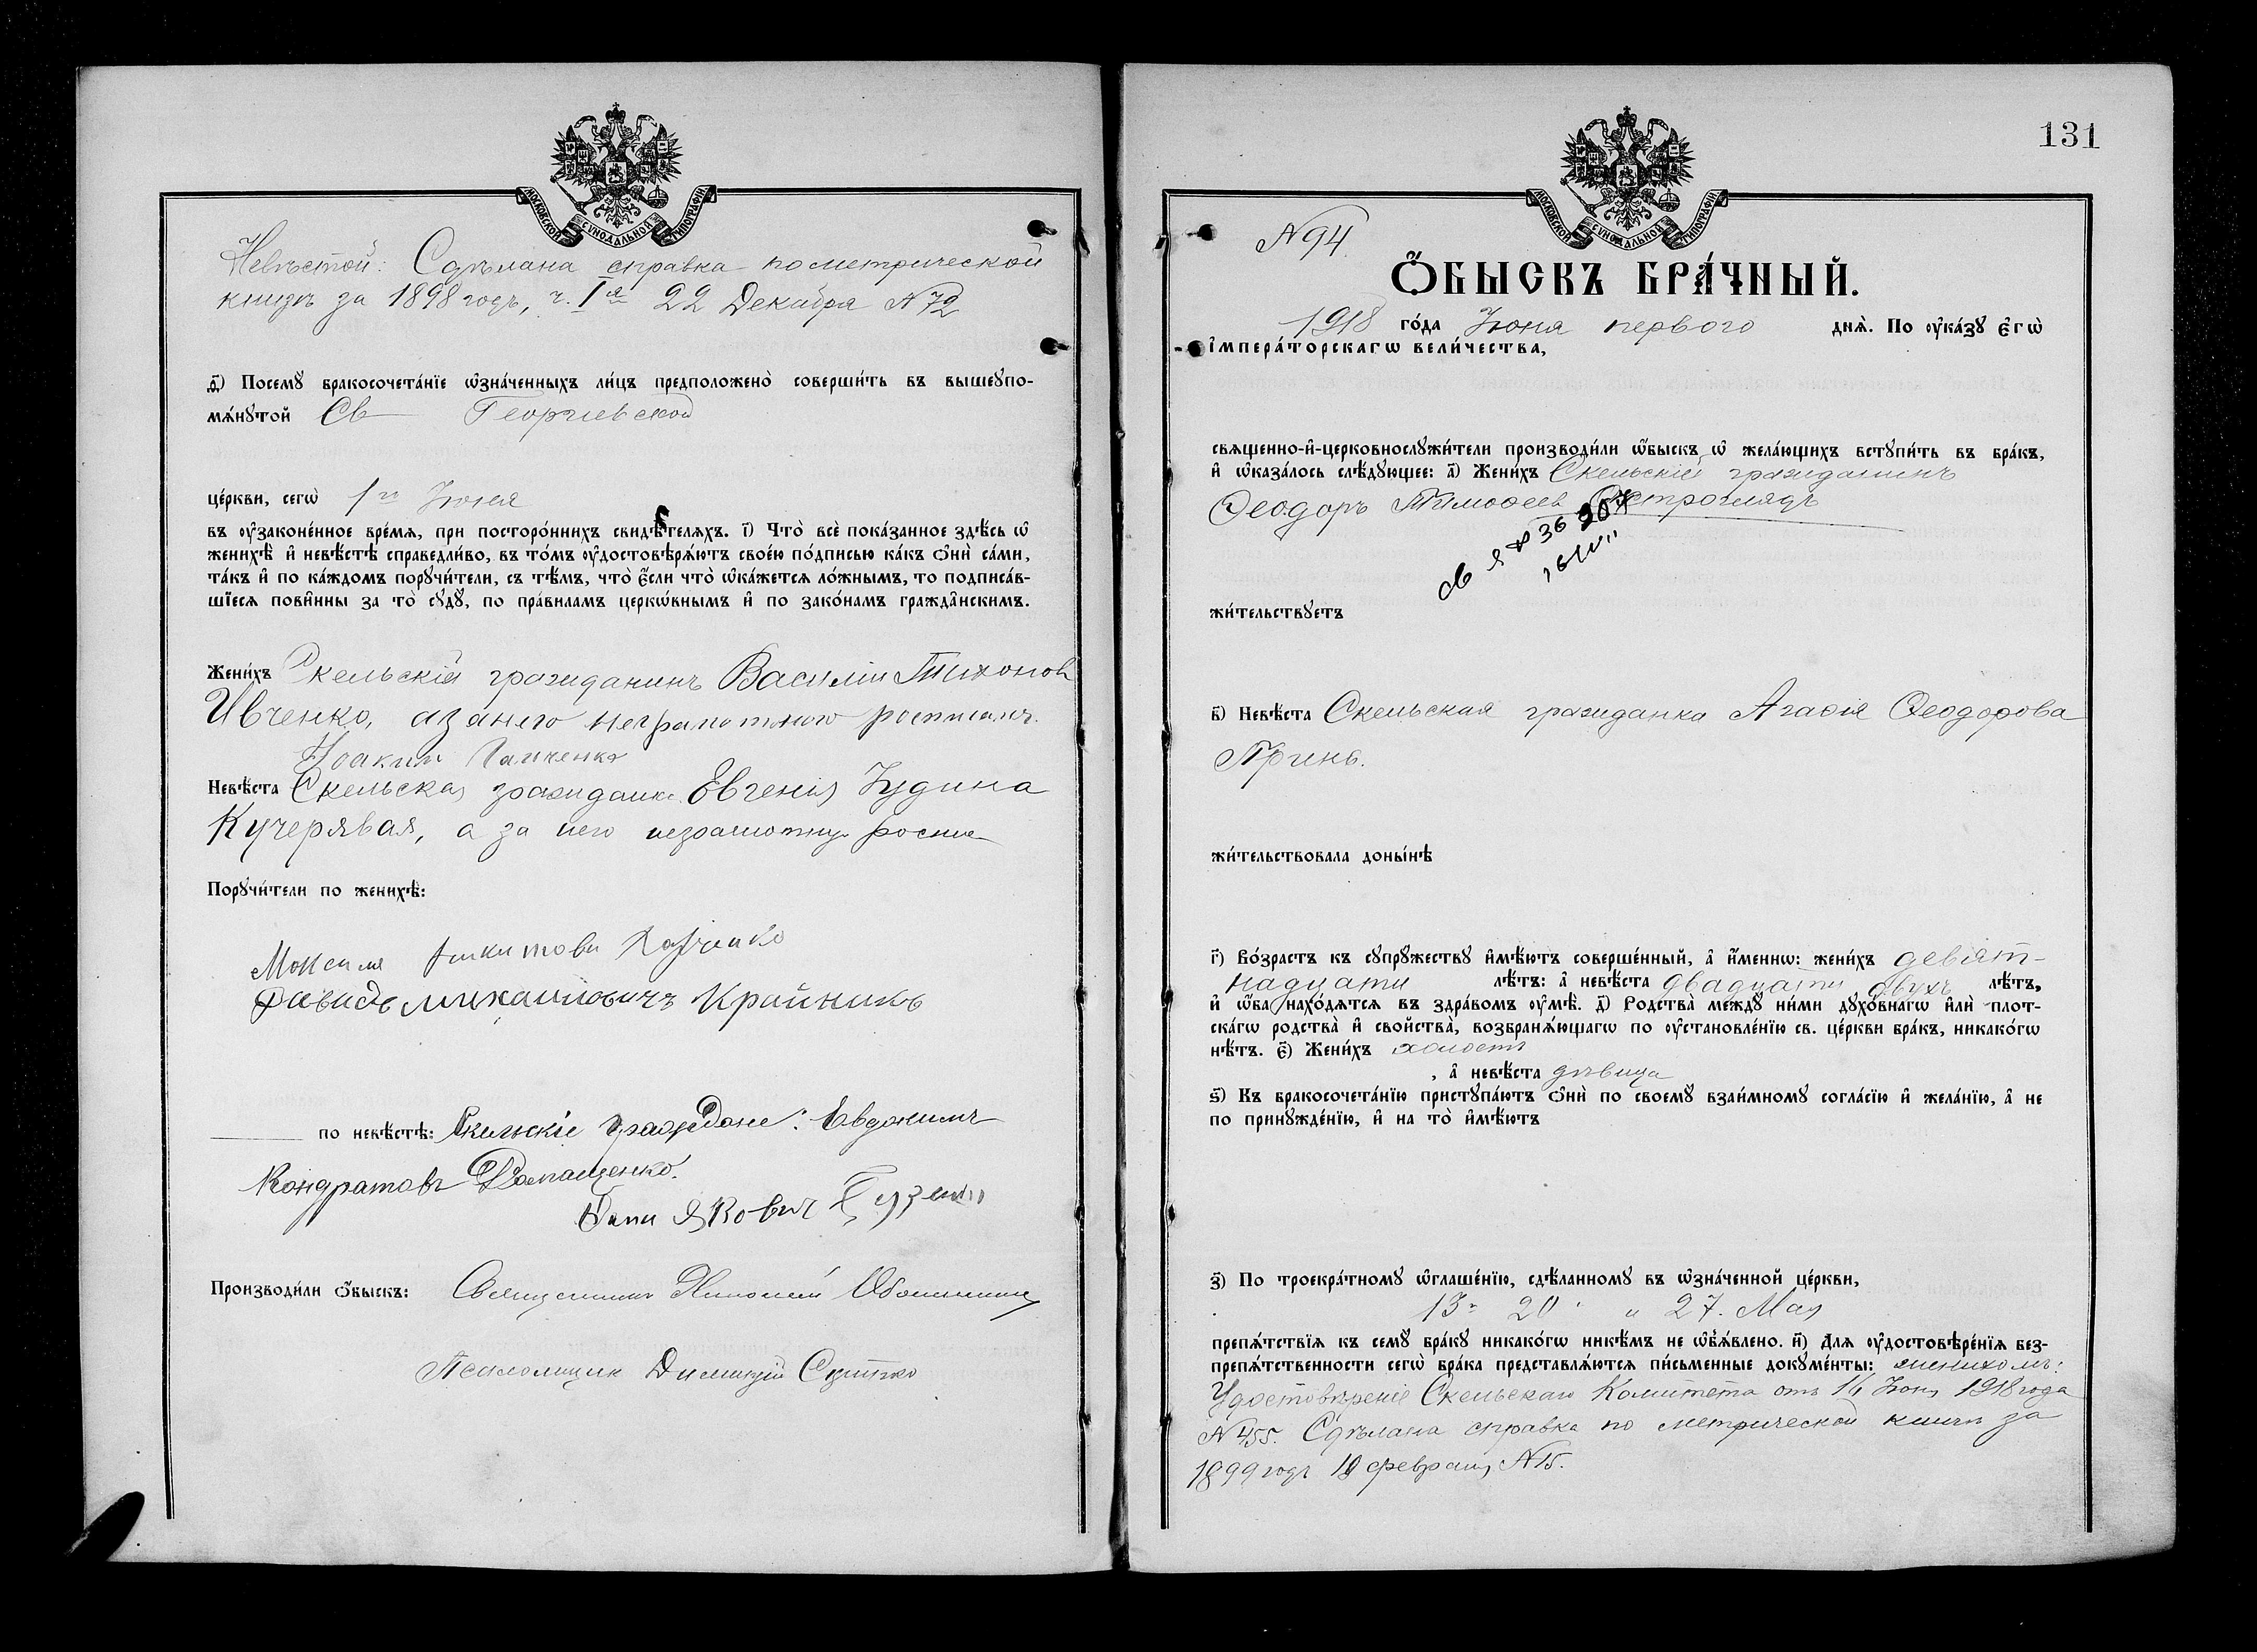 МОСКОВСКОЙ СѴНОДАЛЬНОЙ ТИПОГРАФІИ
Невѣстой: Сдѣлана справка по метрической
книгѣ за 1898 годъ, ч. I я 22 Декабря N 72
д҃) Посемꙋ бракосочета́нїе ѡ҆зна́ченныхъ ли́цъ предположено̀ соверши́ть въ вышеꙋпо-
мѧ́нꙋтой Св Георгіевской
це́ркви, сегѡ̀ 1го Іюня
въ ᲂу҆зако́ненное вре́мѧ, при посторо́ннихъ свидѣ́телѧхъ. і҃) Что̀ всѐ пока́занное здѣ́сь ѡ҆
женихѣ̀ и҆ невѣ́стѣ справедли́во, въ то́мъ ᲂу҆достовѣрѧ́ютъ свое́ю по́дписью ка́къ ѻ҆нѝ са́ми,
та́къ и҆ по ка́ждомъ порꙋчи́тели, съ тѣ́мъ, что̀ є҆́сли что̀ ѡ҆ка́жетсѧ ло́жнымъ, то подписа́в-
шїесѧ пови́нны за то̀ сꙋдꙋ̀, по пра́виламъ церкѡ́внымъ и҆ по зако́намъ гражда́нскимъ.
Жени́хъ Скельскій гражданинъ Василій Тихонов
Ивченко, а за него неграмотного росписалъ
Іоаким Панченко
Невѣ́ста Скельская гражданка Евгенія Іудина
Кучерявая, а за него неграмотную
Порꙋчи́тели по женихѣ̀:
Давидъ Михаиловичъ Крайникъ
по невѣ́стѣ: Скельскіе граждане: Евдокимъ
Кондратовъ Ромащенко.
Якович
Производи́ли ѻ҆́быскъ: Священникъ
Псаломщик Димитрій
131
МОСКОВСКОЙ СѴНОДАЛЬНОЙ ТИПОГРАФІИ
N 94
Ѻ҆́БЫСКЪ БРА́ЧНЫЙ.
1918 го́да Іюня первого днѧ̀. По ᲂу҆ка́зꙋ є҆гѡ̀
і҆мпера́торскагѡ вели́чества,
свѧщенно-и҆-церковнослꙋжи́тели производи́ли ѡ҆́быскъ ѡ҆ жела́ющихъ встꙋпи́ть въ бра́къ,
и҆ ѡ҆каза́лось слѣ́дꙋющее: а҃) Жени́хъ Скельскій гражданинъ
Ѳеодоръ Тимоѳеев Остроглядъ
жи́тельствꙋетъ
в҃) Невѣ́ста Скельская гражданка Агаѳія Ѳеодорова
Гринь.
жи́тельствовала доны́нѣ
г҃) Во́зрастъ къ сꙋпрꙋжествꙋ и҆мѣ́ютъ соверше́нный, а҆ и҆́меннѡ: жени́хъ девят-
надцати лѣ́тъ: а҆ невѣ́ста двадцати двухъ лѣ́тъ,
и҆ ѡ҆́ба нахо́дѧтсѧ въ здра́вомъ ᲂу҆мѣ̀. д҃) Родства̀ междꙋ ни́ми дꙋхо́внагѡ и҆лѝ плот-
ска́гѡ родства̀ и҆ свойства̀, возбранѧ́ющагѡ по ᲂу҆становле́нїю св. це́ркви бра́къ, никако́гѡ
нѣ́тъ. є҃) Жени́хъ холостъ
, а҆ невѣ́ста дѣвица
ѕ҃) Къ бракосочета́нїю пристꙋпа́ютъ ѻ҆нѝ по своемꙋ̀ взаи́мномꙋ согла́сїю и҆ жела́нїю, а҆ не
по принꙋжде́нїю, и҆ на то̀ и҆мѣ́ютъ
з҃) По троекра́тномꙋ ѡ҆глаше́нїю, сдѣ́ланномꙋ въ ѡ҆зна́ченной це́ркви,
13, 20 и 27. Мая
препѧ́тствїѧ къ семꙋ̀ бра́кꙋ никако́гѡ никѣ́мъ не ѡ҆б̾ѧ́влено. и҃) Для ᲂу҆достовѣре́нїѧ без-
препѧ́тственности сегѡ̀ бра́ка представлѧ́ютсѧ пи́сьменные докꙋме́нты: женихомъ:
Удостовѣреніе Скельскаго Комитета отъ 14 Іюня 1918 года
N 455. Сдѣлана справка по метрической книгѣ за
1899 годъ февраля N 15.